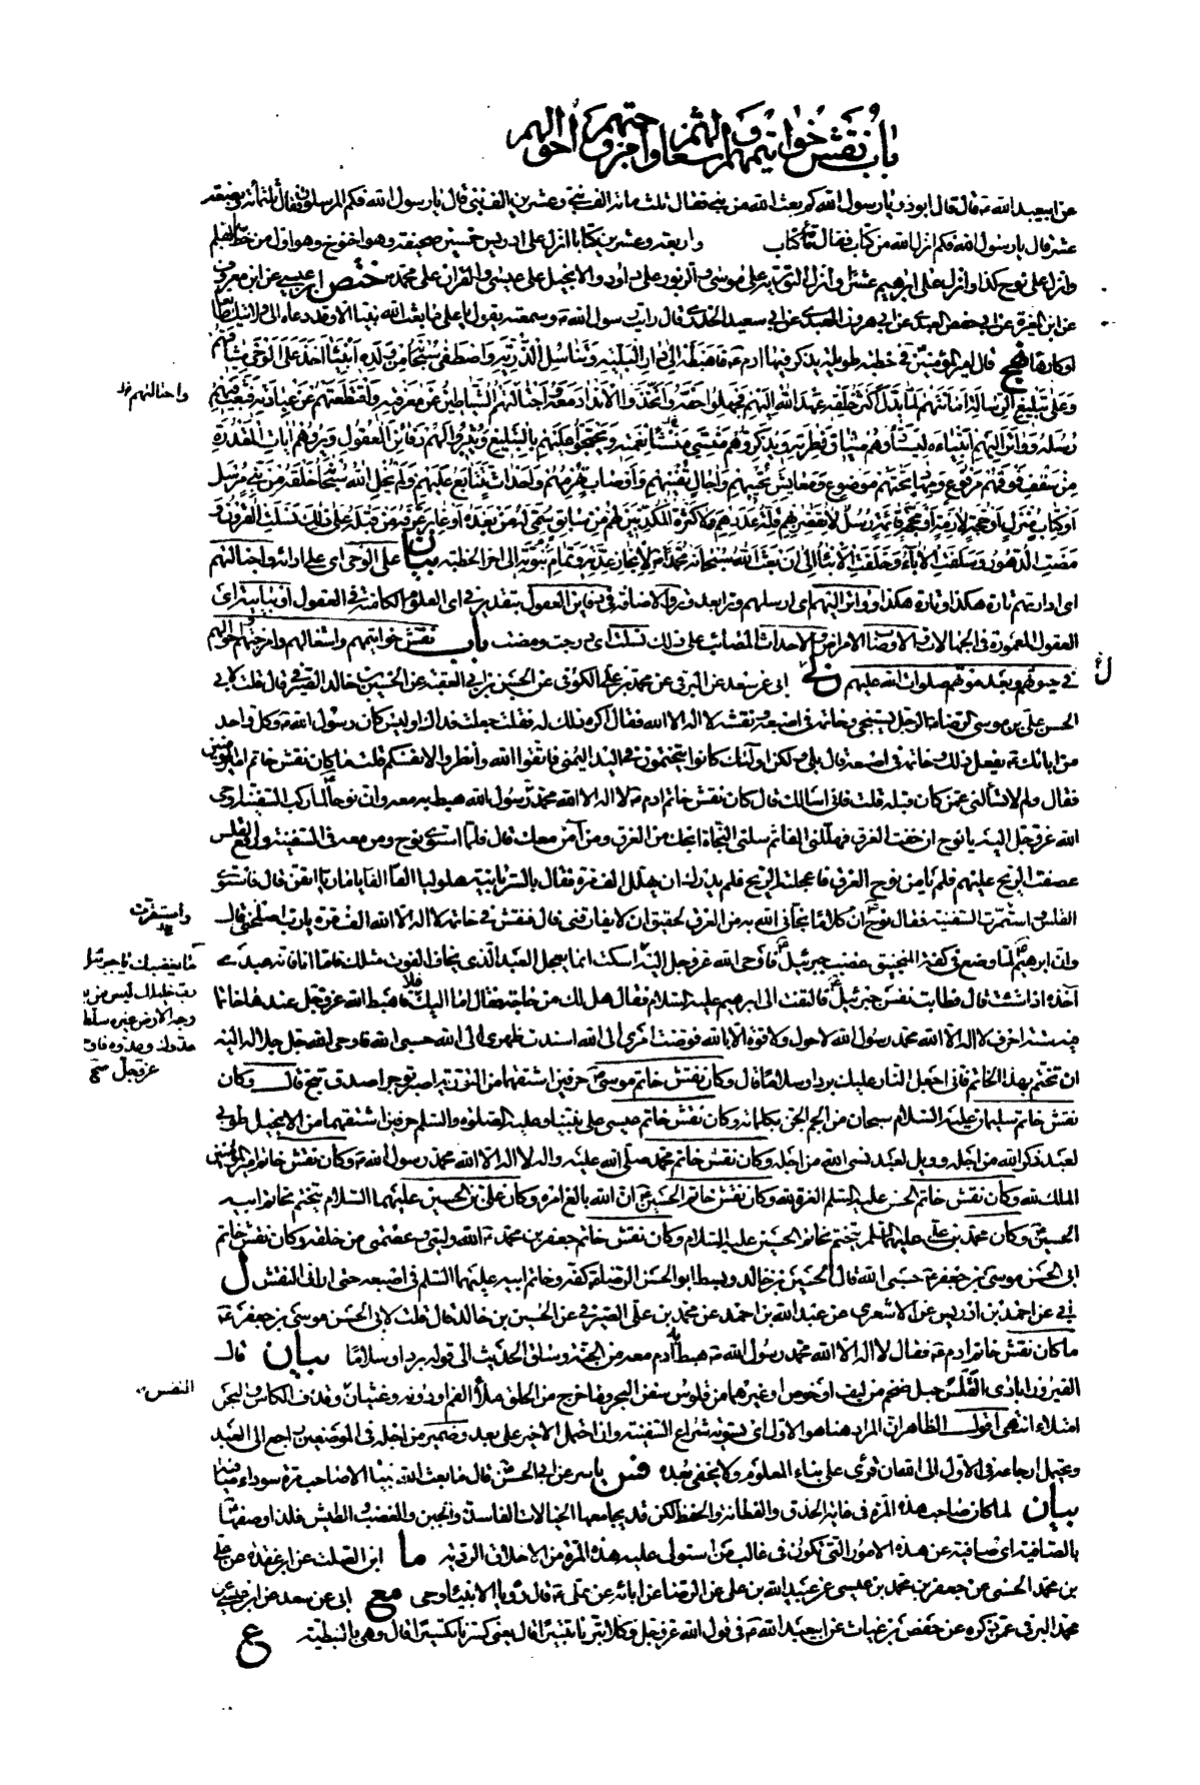 باب نقش خواتيمهم واشغالهم وامزجتهم واحوالهم
عن ابي عبد الله ع قال قال ابو ذر يا رسول الله كم بعث الله من نبي فقال ثلث مائة الف نبي وعشرين الف نبي قال يا رسول الله فكم المرسلون فقال ثلثمائة وبضعة
عشر قال يا رسول الله فكم انزل الله من كتاب فقال مائة كتاب واربعة وعشرين كتابا انزل على ادريس خمسين صحيفة وهو اخنوخ وهو اول من خط بالقلم
وانزل على نوح كذا وانزل على ابرهيم عشرا وانزل التورية على موسى والزبور على داود والانجيل على عيسى والقران على محمد ص ختص ابن عيسى عن ابن معروف
عن ابن المغيرة عن ابي حفص العبدي عن ابي هرون العبدي عن ابي سعيد الخدري قال رايت رسول الله ص وسمعته يقول يا علي ما بعث الله نبيا الا وقد دعاه الى ولايتك طائعا
او كارها نهج قال امير المؤمنين ع في خطبة طويلة يذكر فيها ادم ع فاهبطه الى دار البلية وتناسل الذرية واصطفى سبحانه من ولده انبياء اخذ على الوحي ميثاقهم
وعلى تبليغ الرسالة امانتهم لما بدل اكثر خلقه عهد الله اليهم فجهلوا حقه واتخذوا الانداد معه واجتالتهم الشياطين عن معرفته واقتطعتهم عن عبادته فبعث فيهم
واحتالتهم خل
رسله وواتر اليهم انبياءه ليستأدوهم ميثاق فطرته ويذكروهم منسي نعمته ويحتجوا عليهم بالتبليغ ويثيروا لهم دفائن العقول ويروهم ايات المقدرة
من سقف فوقهم مرفوع ومهاد تحتهم موضوع ومعايش تحييهم واجال تفنيهم واوصاب تهرمهم واحداث تتابع عليهم ولم يخل الله سبحانه خلقه من نبي مرسل
او كتاب منزل او حجة لازمة او محجة قائمة رسل لا تقصر بهم قلة عددهم ولا كثرة المكذبين لهم من سابق سمي له من بعده او غابر عرفه من قبله على ذلك نسلت القرون و
مضت الدهور وسلفت الاباء وخلفت الابناء الى ان بعث الله سبحانه محمدا ص لانجاز عدته وتمام نبوته الى اخر الخطبة بيان على الوحي اي على ادائه واجتالتهم
اي ادارتهم تارة هكذا وتارة هكذا وواتر اليهم اي ارسلهم وترا بعد وتر والاضافة في دفائن العقول بتقدير في اي العلوم الكامنة في العقول او بيانية اي
العقول المغمورة في الجهالات والاوصاب الامراض والاحداث المصائب على ذلك نسلت اي درجت ومضت باب نقش خواتيمهم واشغالهم وامزجتهم واحوالهم
في حيوتهم وبعد موتهم صلوات الله عليهم ن لي ابي عن سعد عن البرقي عن محمد بن علي الكوفي عن الحسن بن ابي العقبة عن الحسين بن خالد الصيرفي قال قلت لابي
الحسن علي بن موسى الرضا ع الرجل يستنجي وخاتمه في اصبعه ونقشه لا اله الا الله فقال اكره ذلك له فقلت جعلت فداك اوليس كان رسول الله ص وكل واحد
من ابائك ع يفعل ذلك وخاتمه في اصبعه قال بلى ولكن اولئك كانوا يتختمون في اليد اليمنى فاتقوا الله وانظروا لانفسكم قلت ما كان نقش خاتم امير المؤمنين
فقال ولم لا تسألني عمن كان قبله قلت فاني اسألك قال كان نقش خاتم ادم ع لا اله الا الله محمد رسول الله هبط به معه وان نوحا لما ركب السفينة اوحى
الله عز وجل اليه يا نوح ان خفت الغرق فهللني الفا ثم سلني النجاة انجك من الغرق ومن آمن معك قال فلما استوى نوح ومن معه في السفينة ورفع القلس
عصفت الريح عليهم فلم يأمن نوح الغرق فاعجلته الريح فلم يدرك ان يهلل الف مرة فقال بالسريانية هلوليا الفا الفا يا ماريا اتقن قال فاستوى
القلس واستمرت السفينة فقال نوح ع ان كلاما نجاني الله به من الغرق لحقيق ان لا يفارقني قال فنقش في خاتمه لا اله الا الله الف مرة يا رب اصلحني قال
واستقرت خ
وان ابرهيم ع لما وضع في كفة المنجنيق غضب جبرئيل ع فاوحى الله عز وجل اليه اسكت انما يعجل العبد الذي يخاف الفوت مثلك فاما انا فانه عبدي
ما يغضبك يا جبرئيل
آخذه اذا شئت قال فطابت نفس جبرئيل ع فالتفت الى ابرهيم عليه السلام فقال هل لك من حاجة فقال اما اليك فلا فاهبط الله عز وجل عندها خاتما
رب خليلك ليس من يعبدك على
وجه الارض غيره سلطت عليه
عدوك وعدوه فاوحى الله
عز وجل صح
فيه ستة احرف لا اله الا الله محمد رسول الله لا حول ولا قوة الا بالله فوضت امري الى الله اسندت ظهري الى الله حسبي الله فاوحى الله جل جلاله اليه
ان تختم بهذا الخاتم فاني اجعل النار عليك بردا وسلاما قال وكان نقش خاتم موسى ع حرفين اشتقهما من التورية اصبر توجر اصدق تنج قال وكان
نقش خاتم سليمان عليه السلام سبحان من الجم الجن بكلماته وكان نقش خاتم عيسى على نبينا وعليه الصلوة والسلم حرفين اشتقهما من الانجيل طوبى
لعبد ذكر الله من اجله وويل لعبد نسي الله من اجله وكان نقش خاتم محمد صلى الله عليه واله لا اله الا الله محمد رسول الله ص وكان نقش خاتم امير المؤمنين
الملك لله وكان نقش خاتم الحسن عليه السلم العزة لله وكان نقش خاتم الحسين ع ان الله بالغ امره وكان علي بن الحسين عليهما السلام يتختم بخاتم ابيه
الحسين ع وكان محمد بن علي عليهما السلم يتختم بخاتم الحسين عليه السلام وكان نقش خاتم جعفر بن محمد ع الله وليي وعصمتي من خلقه وكان نقش خاتم
ابي الحسن موسى بن جعفر ع حسبي الله قال الحسين بن خالد وبسط ابو الحسن الرضا ع كفه وخاتم ابيه عليهما السلم في اصبعه حتى اراني النقش ل
ابي عن احمد بن ادريس عن الاشعري عن عبد الله بن احمد عن محمد بن علي الصيرفي عن الحسين بن خالد قال قلت لابي الحسن موسى بن جعفر ع
ما كان نقش خاتم ادم ع فقال لا اله الا الله محمد رسول الله ص هبط به ادم معه من الجنة وساق الحديث الى قوله بردا وسلاما بيان قال
الفيروزابادي القلس حبل ضخم من ليف او خوص او غيرهما من قلوس سفن البحر وما خرج من الحلق ملأ الفم او دونه وغثيان وقذف الكاس والبحر
النفس
امتلاء انتهى اقول الظاهر ان المراد هنا هو الاول اي بتسوية شراع السفينة وان احتمل الاخير على بعد وضمير من اجله في الموضعين راجع الى العبد
ويحتمل ارجاعه في الاول الى الله ان قرئ على بناء المعلوم ولا يخفى بعده فس ياسر عن ابي الحسن ع قال ما بعث الله نبيا الا صاحب مرة سوداء صافية
بيان لما كان صاحب هذه المرة في غاية الحذق والفطانة والحفظ لكن قد يجامعها الخيالات الفاسدة والجبن والغضب والطيش فلذا وصفها ع
بالصافية اي صافية عن هذه الامور التي تكون في غالب من استولى عليه هذه المرة من الاخلاق الردية ما ابن الصلت عن ابن عقدة عن علي
بن محمد الحسني عن جعفر بن محمد بن عيسى عن عبيد الله بن علي عن الرضا عن ابائه عن علي ع قال رؤيا الانبياء وحي مع ابي عن سعد عن ابن عيسى عن
محمد البرقي عمن ذكره عن حفص بن غياث عن ابي عبد الله ع في قول الله عز وجل وكلا تبرنا تتبيرا قال يعني كسرنا تكسيرا قال وهي بالنبطية
ع